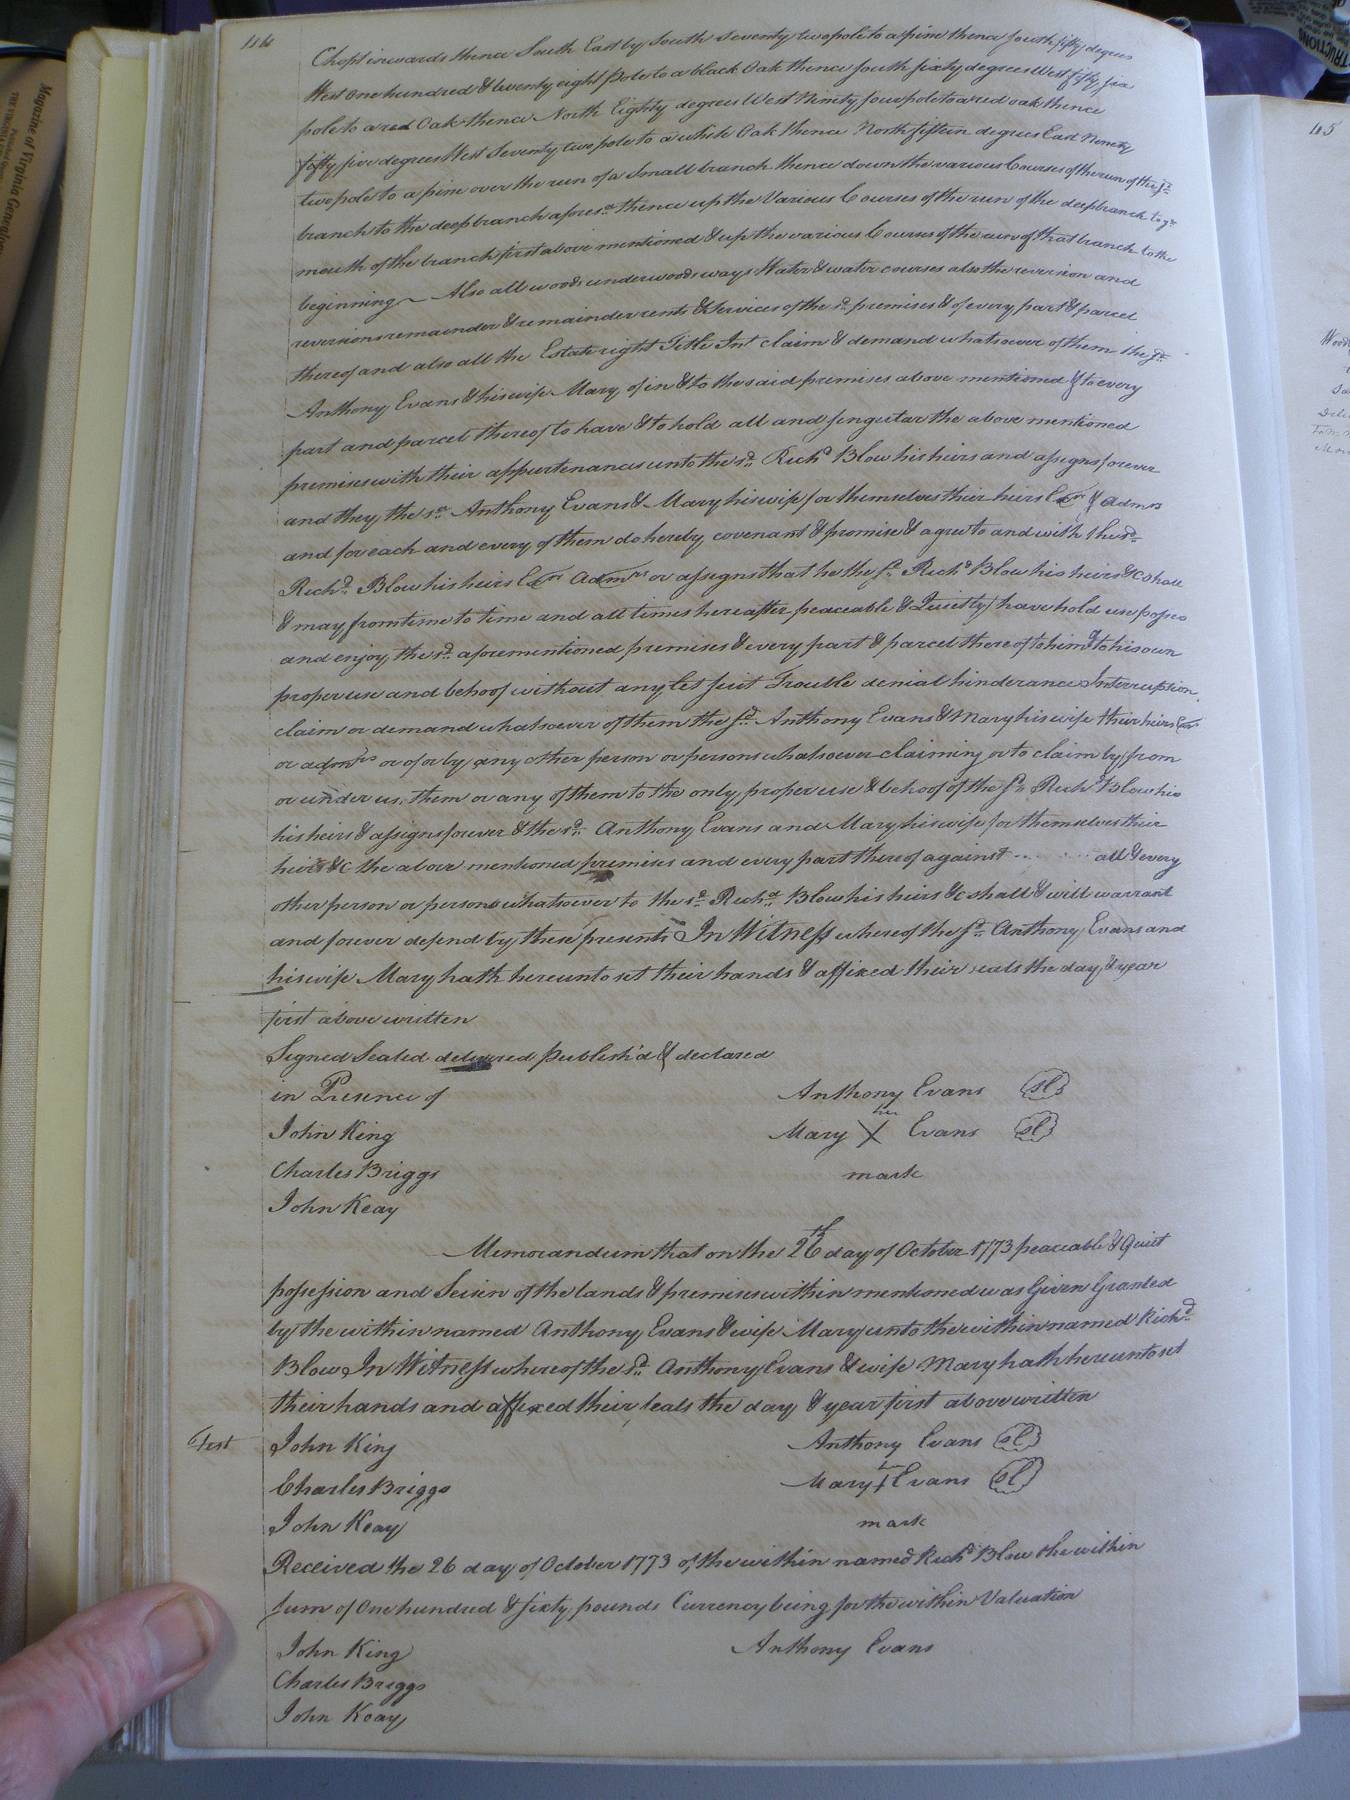 Chopt inwards thence South East by South Seventy two pole to a pine thence South fifty degrees
West One hundred & twenty eight pole to a black Oak thence South Sixty degrees West fifty six
pole to a red Oak thence North Eighty degrees West Ninety four pole to a red oak thence
fifty five degrees West Seventy two pole to a white Oak thence North fifteen degrees East Ninety
two pole to a pine over the run of a Small branch thence down the various Courses of the run of the sd.
branch to the deep branch aforesd. thence up the Various Courses of the run of the deep branch to ye
mouth of the branch first above mentioned & up the various Courses of the run of that branch to the
beginning – Also all woods underwoods ways Water & water courses also the reversion and
reversions remainder & remainders rents & Services of the sd. premises & of every part & parcel
thereof and also all the Estate right Title Int claim & demand whatsoever of them the sd.
Anthony Evans & his wife Mary of in & to the said premises above mentioned & to every
part and parcel thereof to have & to hold all and Singular the above mentioned
premises with their appurtenances unto the sd. Richd. Blow his heirs and assigns forever
and they the sd. Anthony Evans & Mary his wife for themselves their heirs Exrs & Admrs
and for each and every of them do hereby covenant & promise & agree to and with the sd.
Richd. Blow his heirs Exrs Admrs or assigns that he the sd. Richd. Blow his heirs &c shall
& may from time to time and all times hereafter peaceable & Quietly have hold use posses
and enjoy the sd. aforementioned premises & every part & parcel thereof to him & to his own
proper use and behoof without any let suit Trouble denial hinderance Interruption
claim or demand whatsoever of them the sd. Anthony Evans & Mary his wife their heirs Exrs
or admrs or of or by any other person or persons whatsoever claiming or to claim by from
or under us, them or any of them to the only proper use & behoof of the sd. Richd. Blow his
his heirs & assigns forever & the sd. Anthony Evans and Mary his wife for themselves their
heirs &c the above mentioned premises and every part thereof against ... ... all & every
other person or persons whatsoever to the sd. Richd. Blow his heirs &c shall & will warrant
and forever defend by these presents In Witness whereof the sd. Anthony Evans and
his wife Mary hath hereunto set their hands & affixed their seals the day & year
first above written
Signed Sealed delivered publish'd & declared
in Presence of Anthony Evans sls
her
John King Mary X Evans sl
Charles Briggs mark
John Keay
Memorandum that on the 26th day of October 1773 peaceable & Quiet
possession and Seisin of the lands & premises within mentioned was Given Granted
by the within named Anthony Evans & wife Mary unto the within named Richd.
Blow In Witness whereof the sd. Anthony Evans & wife Mary hath hereunto set
their hands and affixed their seals the day & year first above written
Test John King Anthony Evans sl
Charles Briggs Mary + Evans sl
John Keay mark
Received the 26 day of October 1773 of the within named Richd. Blow the within
sum of One hundred & sixty pounds Currency being for the within Valuation
John King Anthony Evans
Charles Briggs
John Keay
Magazine of Virginia
45